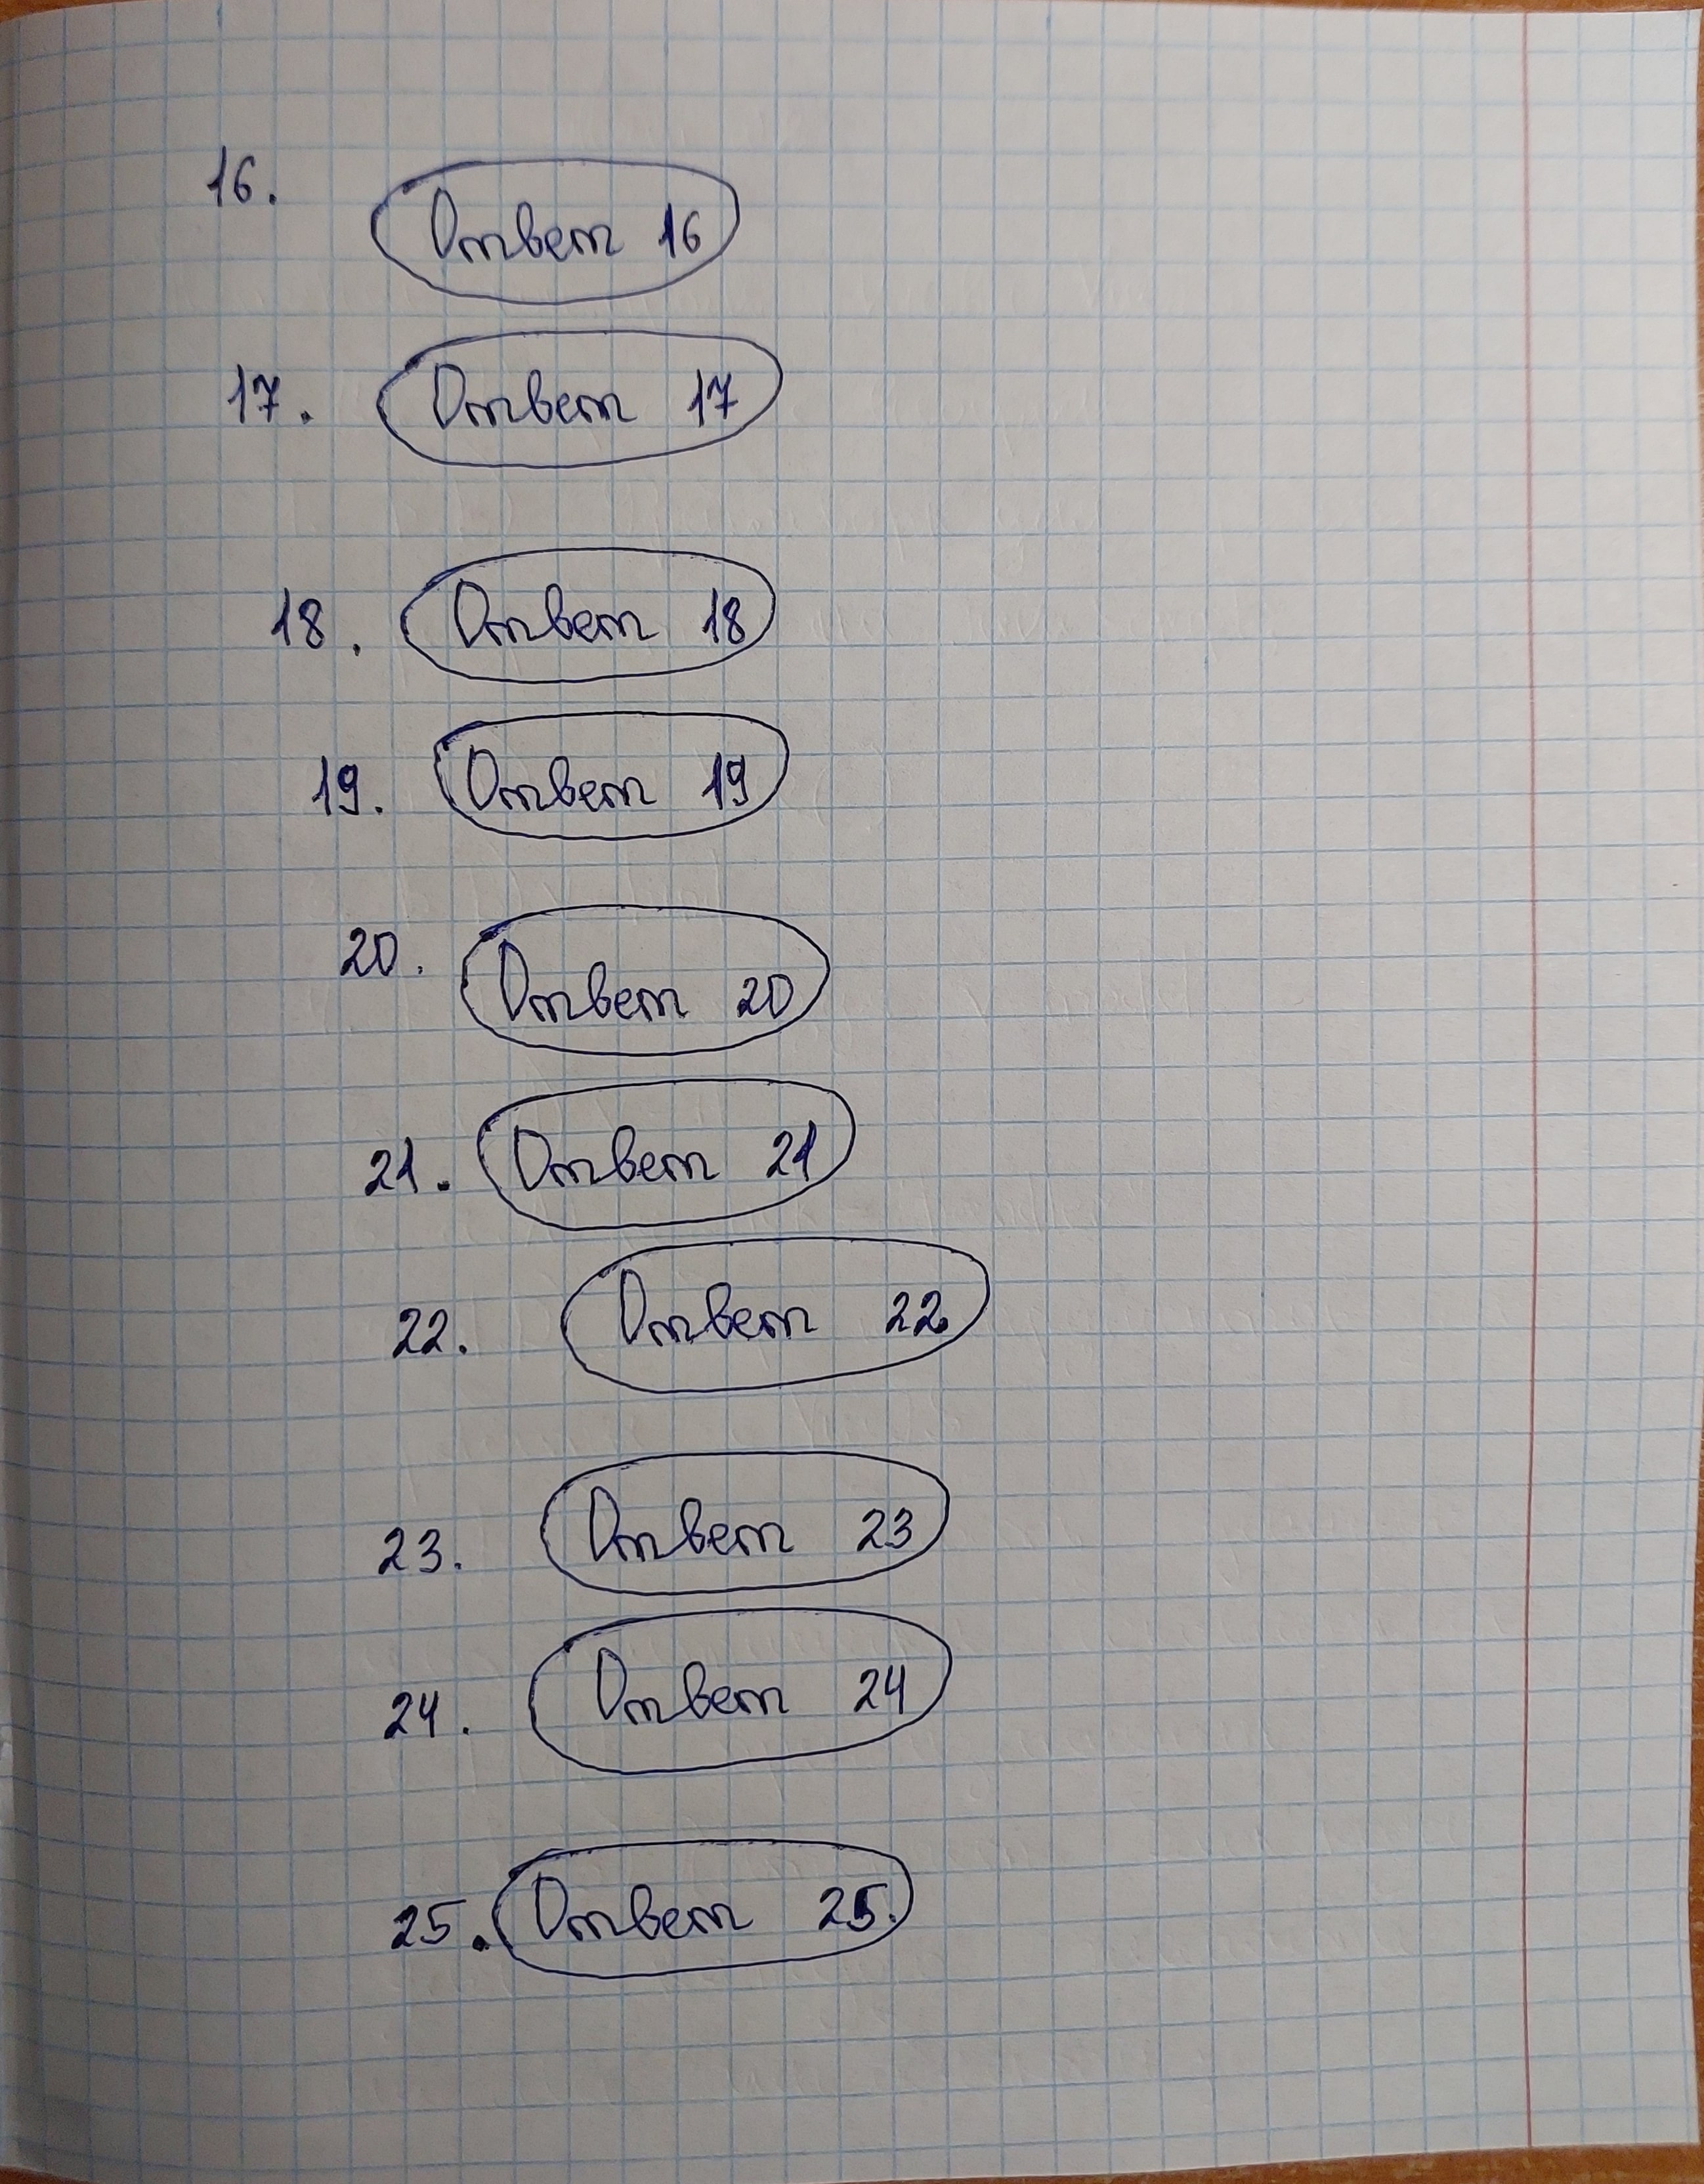 16. Ответ 16
17. Ответ 17
18. Ответ 18
19. Ответ 19
20. Ответ 20
21. Ответ 21
22. Ответ 22
23. Ответ 23
24. Ответ 24
25. Ответ 25.